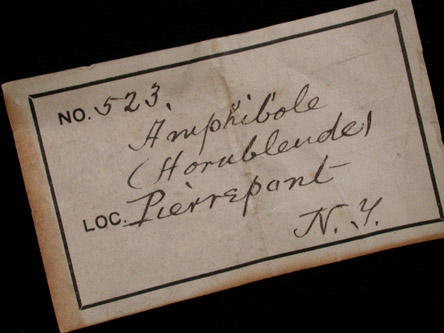 NO. 523.
Amphibole
(Hornblende)
LOC. Pierrepont
N. Y.